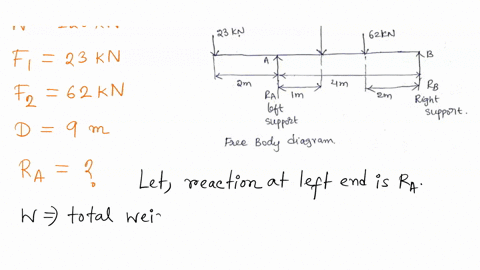 F1 = 23 KN
F2 = 62 KN
D = 9 m
RA = ?
23 KN
62KN
A
B
2m
RA
1m
4m
2m
RB
left
support
Right
support.
Free Body diagram.
Let, reaction at left end is RA.
W ⇒ total wei